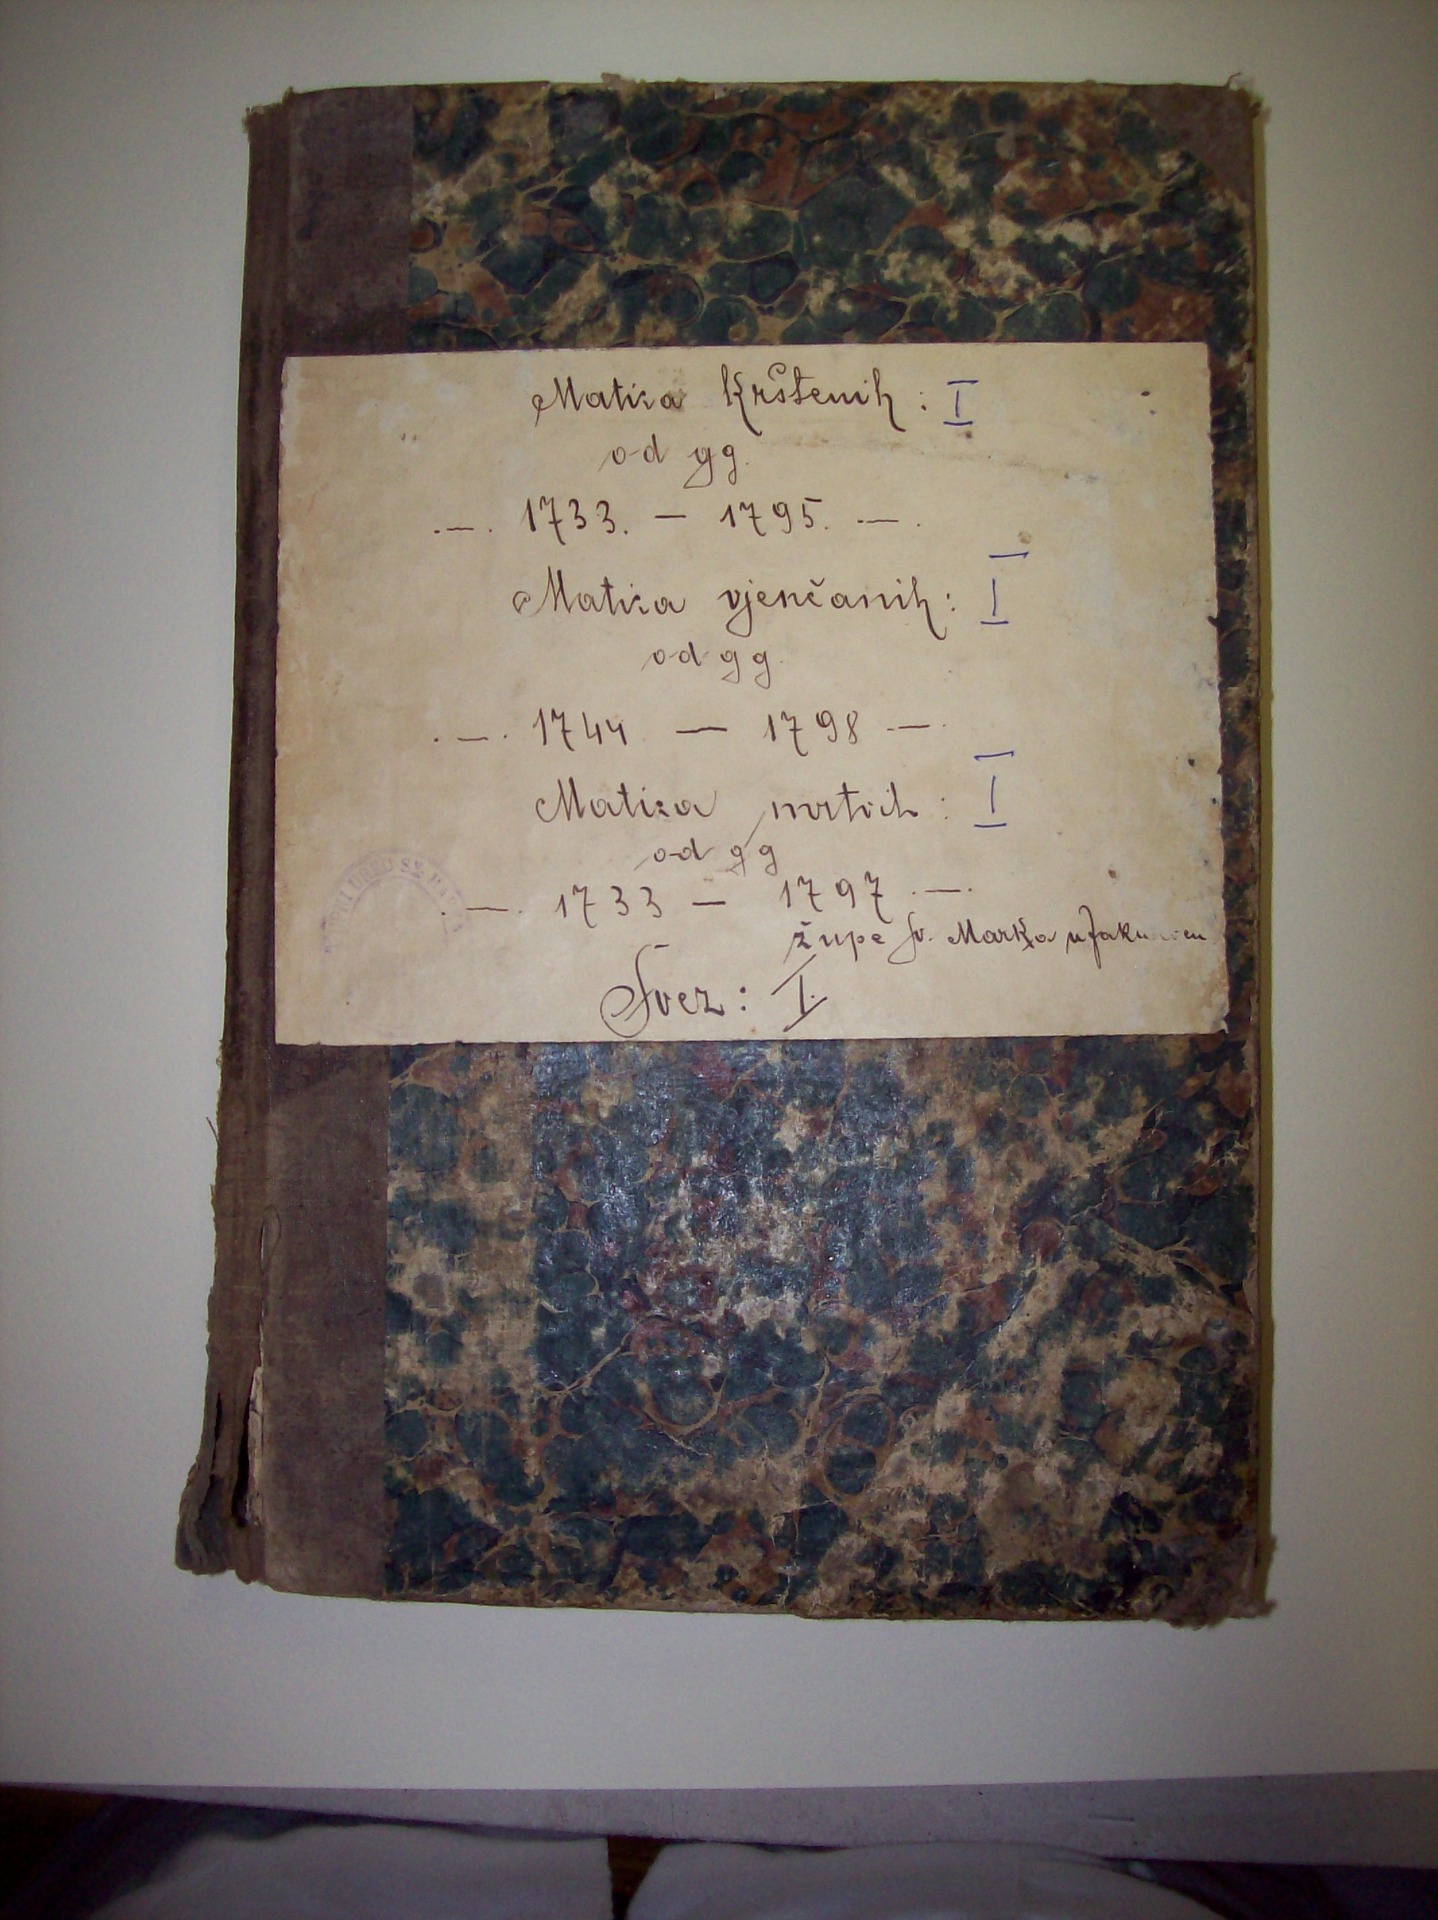 Matica Krštenih : I
od gg.
.—. 1733. — 1795. .—.
Matica vjenčanih : I
od gg.
.—. 1744 — 1798 —.
Matica mrtvih : I
od gg
.—. 1733 — 1797 .—.
župe sv. Marka u
Svez : I.
URED